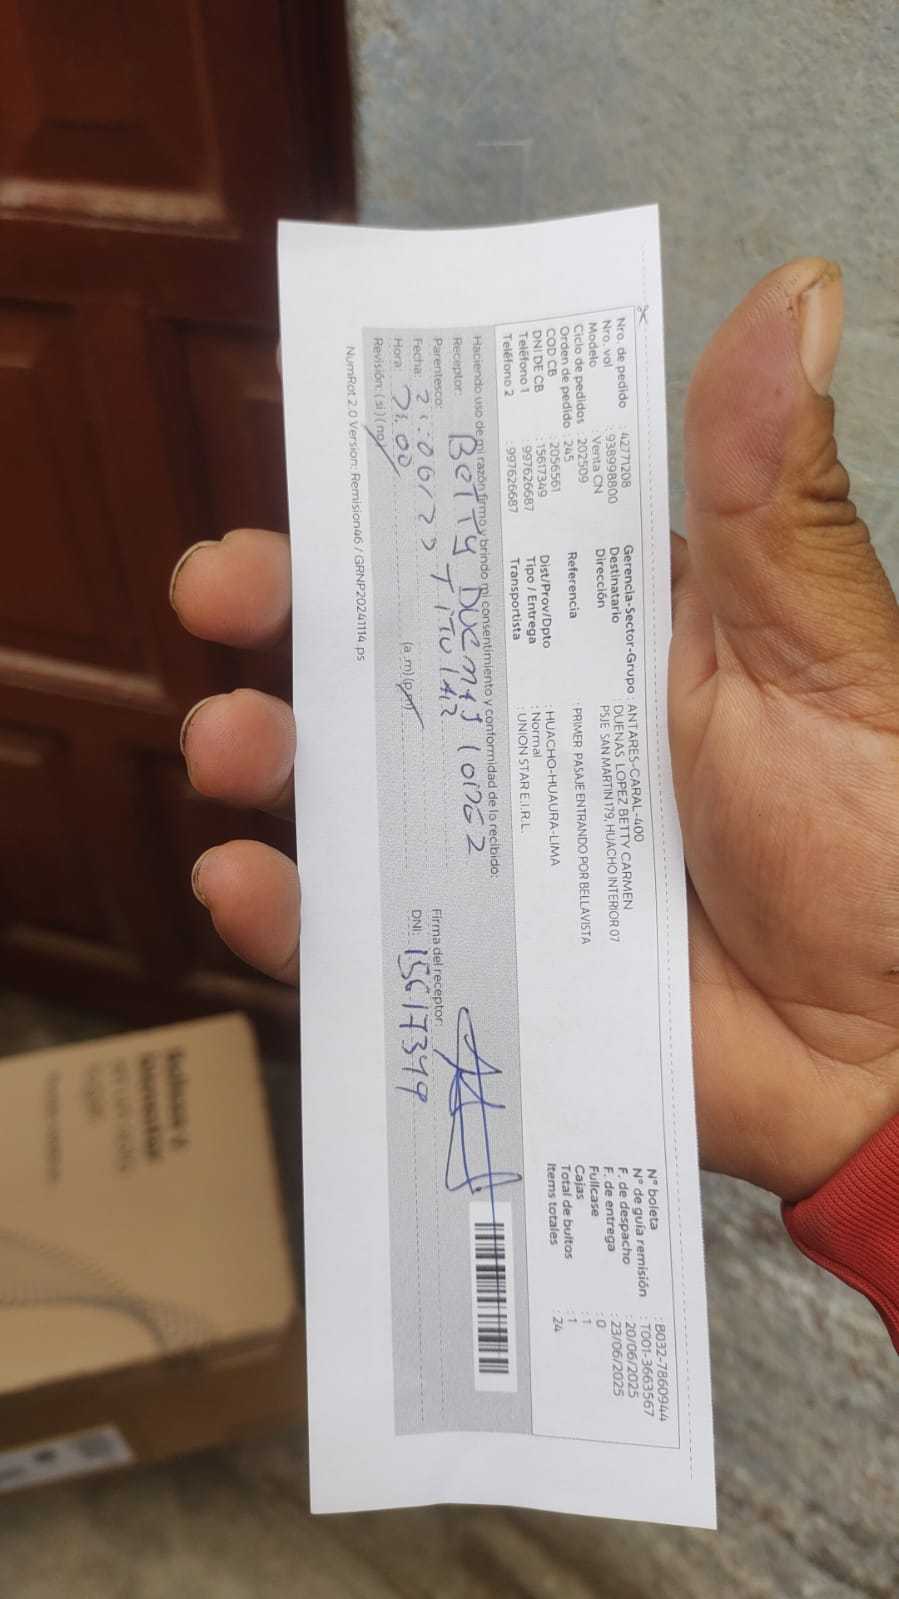 Nro. de pedido : 42771208
Nro. vol : 938998800
Modelo : Venta CN
Ciclo de pedidos : 202509
Orden de pedido : 245
COD CB : 2056561
DNI DE CB : 15617349
Teléfono 1 : 997626687
Teléfono 2 : 997626687
Gerencia-Sector-Grupo : ANTARES-CARAL-400
Destinatario : DUENAS LOPEZ BETTY CARMEN
Dirección : PSJE SAN MARTIN 179, HUACHO INTERIOR 07
Referencia : PRIMER PASAJE ENTRANDO POR BELLAVISTA
Dist/Prov/Dpto : HUACHO-HUAURA-LIMA
Tipo / Entrega : Normal
Transportista : UNION STAR E.I.R.L.
N° boleta : B032-7860944
N° de guía remisión : T001-3663567
F. de despacho : 20/06/2025
F. de entrega : 23/06/2025
Fullcase : 0
Cajas : 1
Total de bultos : 1
Items totales : 24
Haciendo uso de mi razón firmo y brindo mi consentimiento y conformidad de lo recibido:
Receptor: BETTY DUEÑAS LOPEZ
Parentesco: TITULAR
Fecha:
Hora: (a.m) (p.m)
Revisión: (si) (no)
Firma del receptor:
DNI: 15617349
NumRot 2.0 Version: Remision46 / GRNP20241114.ps